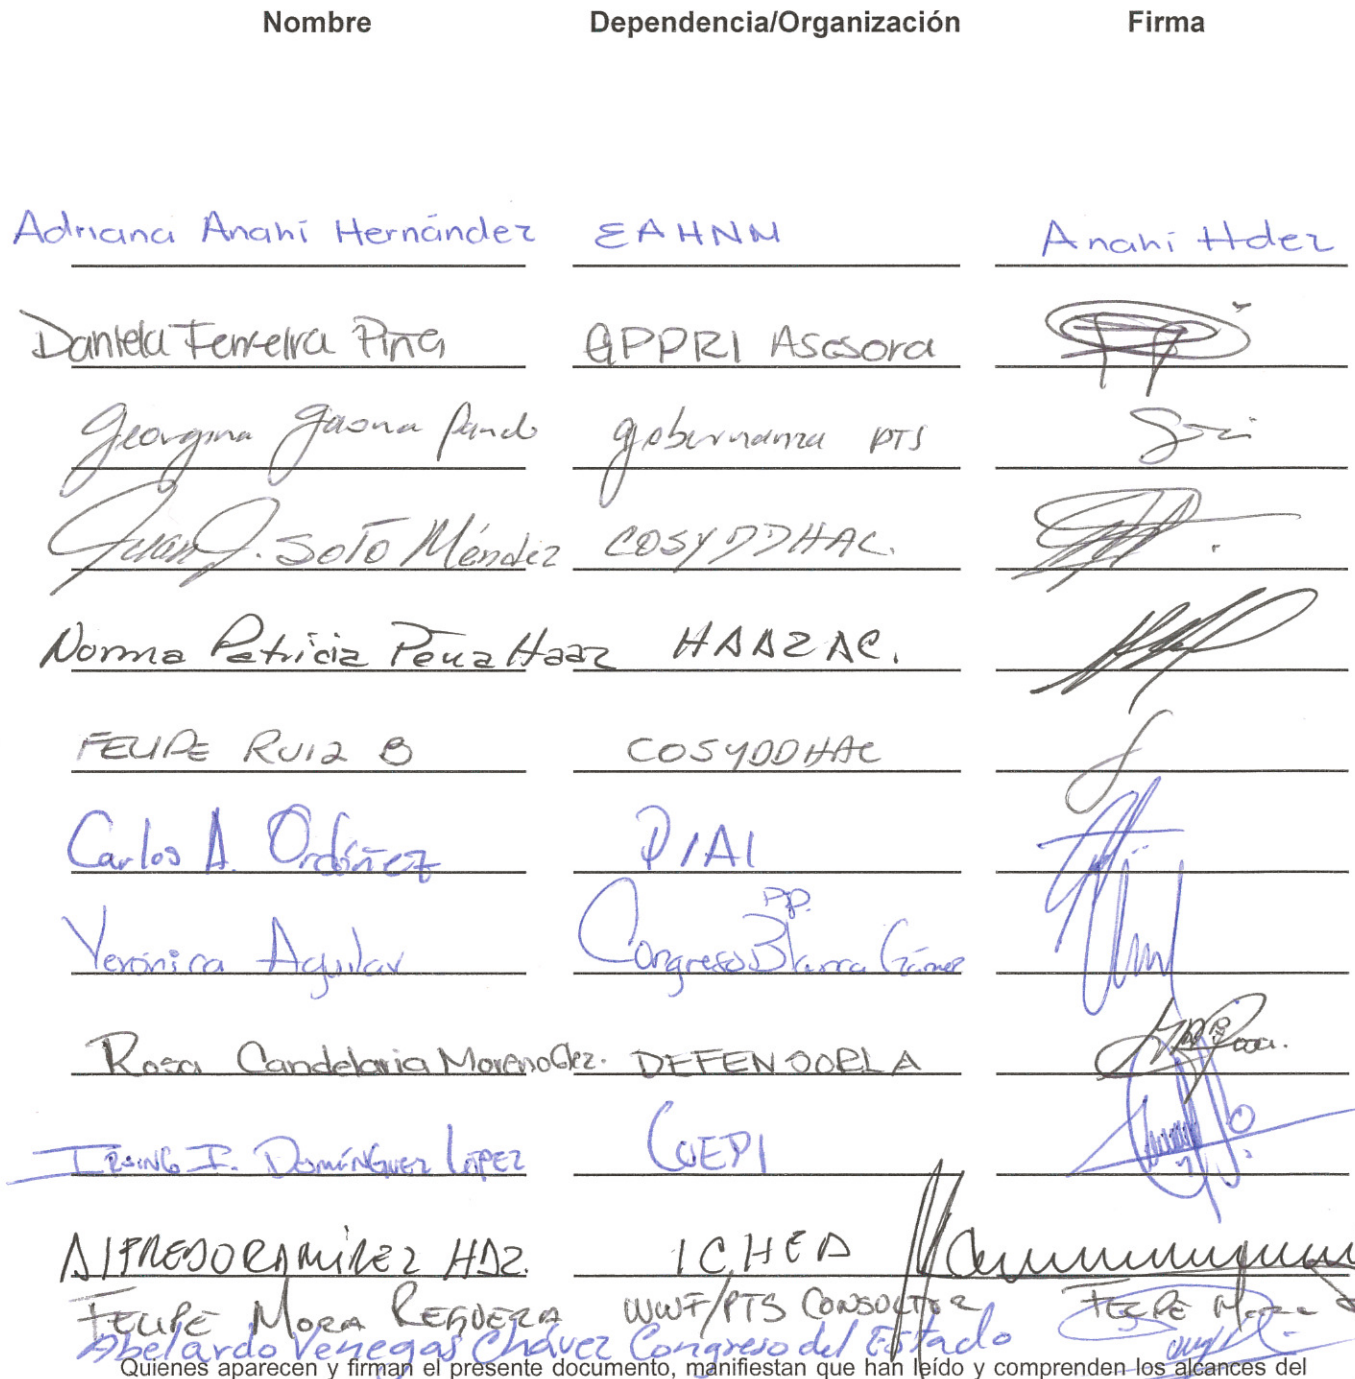 Nombre Dependencia/Organización Firma
Adriana Anahí Hernández EAHNM Anahí Hdez
Daniela Ferreira Piña GPPRI Asesora
Georgina Gaona Pando gobernanza PTS
Juan J. Soto Méndez COSYDDHAC.
Norma Patricia Peña Haaz HAAZ AC.
FELIPE RUIZ B COSYDDHAC
Carlos A. Ordóñez PIAI
Verónica Aguilar Congreso PP. Blanca Gámez
Rosa Candelaria Moreno Glez. DEFENSORIA
IRVING I. DOMÍNGUEZ LÓPEZ COEPI
ALFREDO RAMÍREZ HDZ. ICHEA
FELIPE MORA REGUERA WWF/PTS CONSULTOR FELIPE MORA
Abelardo Venegas Chávez Congreso del Estado
Quienes aparecen y firman el presente documento, manifiestan que han leído y comprenden los alcances del